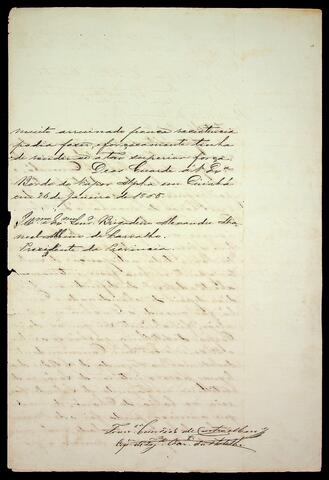 muito arruinado pouca resistencia
podia fazer, e forçosamente tinha
de render-se a tão superior força.
Deos Guarde a V. Exª
Bordo do Vapor Alpha em Cuiabá
em 26 de Janeiro de 1865.
Illmo e Exmo Senr. Brigadeiro Alexandre Ma-
noel Albino de Carvalho.
Presidente da Provincia.
Franco Candido de Castro